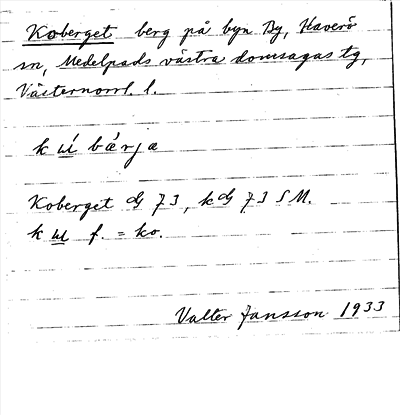 Koberget berg på byn By, Haverö
sn, Medelpads västra domsagas tg,
Västernorrl. l.
k ɯ́ bǽrja
Koberget dg 73, kdg 73 SM.
k ɯ f. = ko.
Valter Jansson 1933